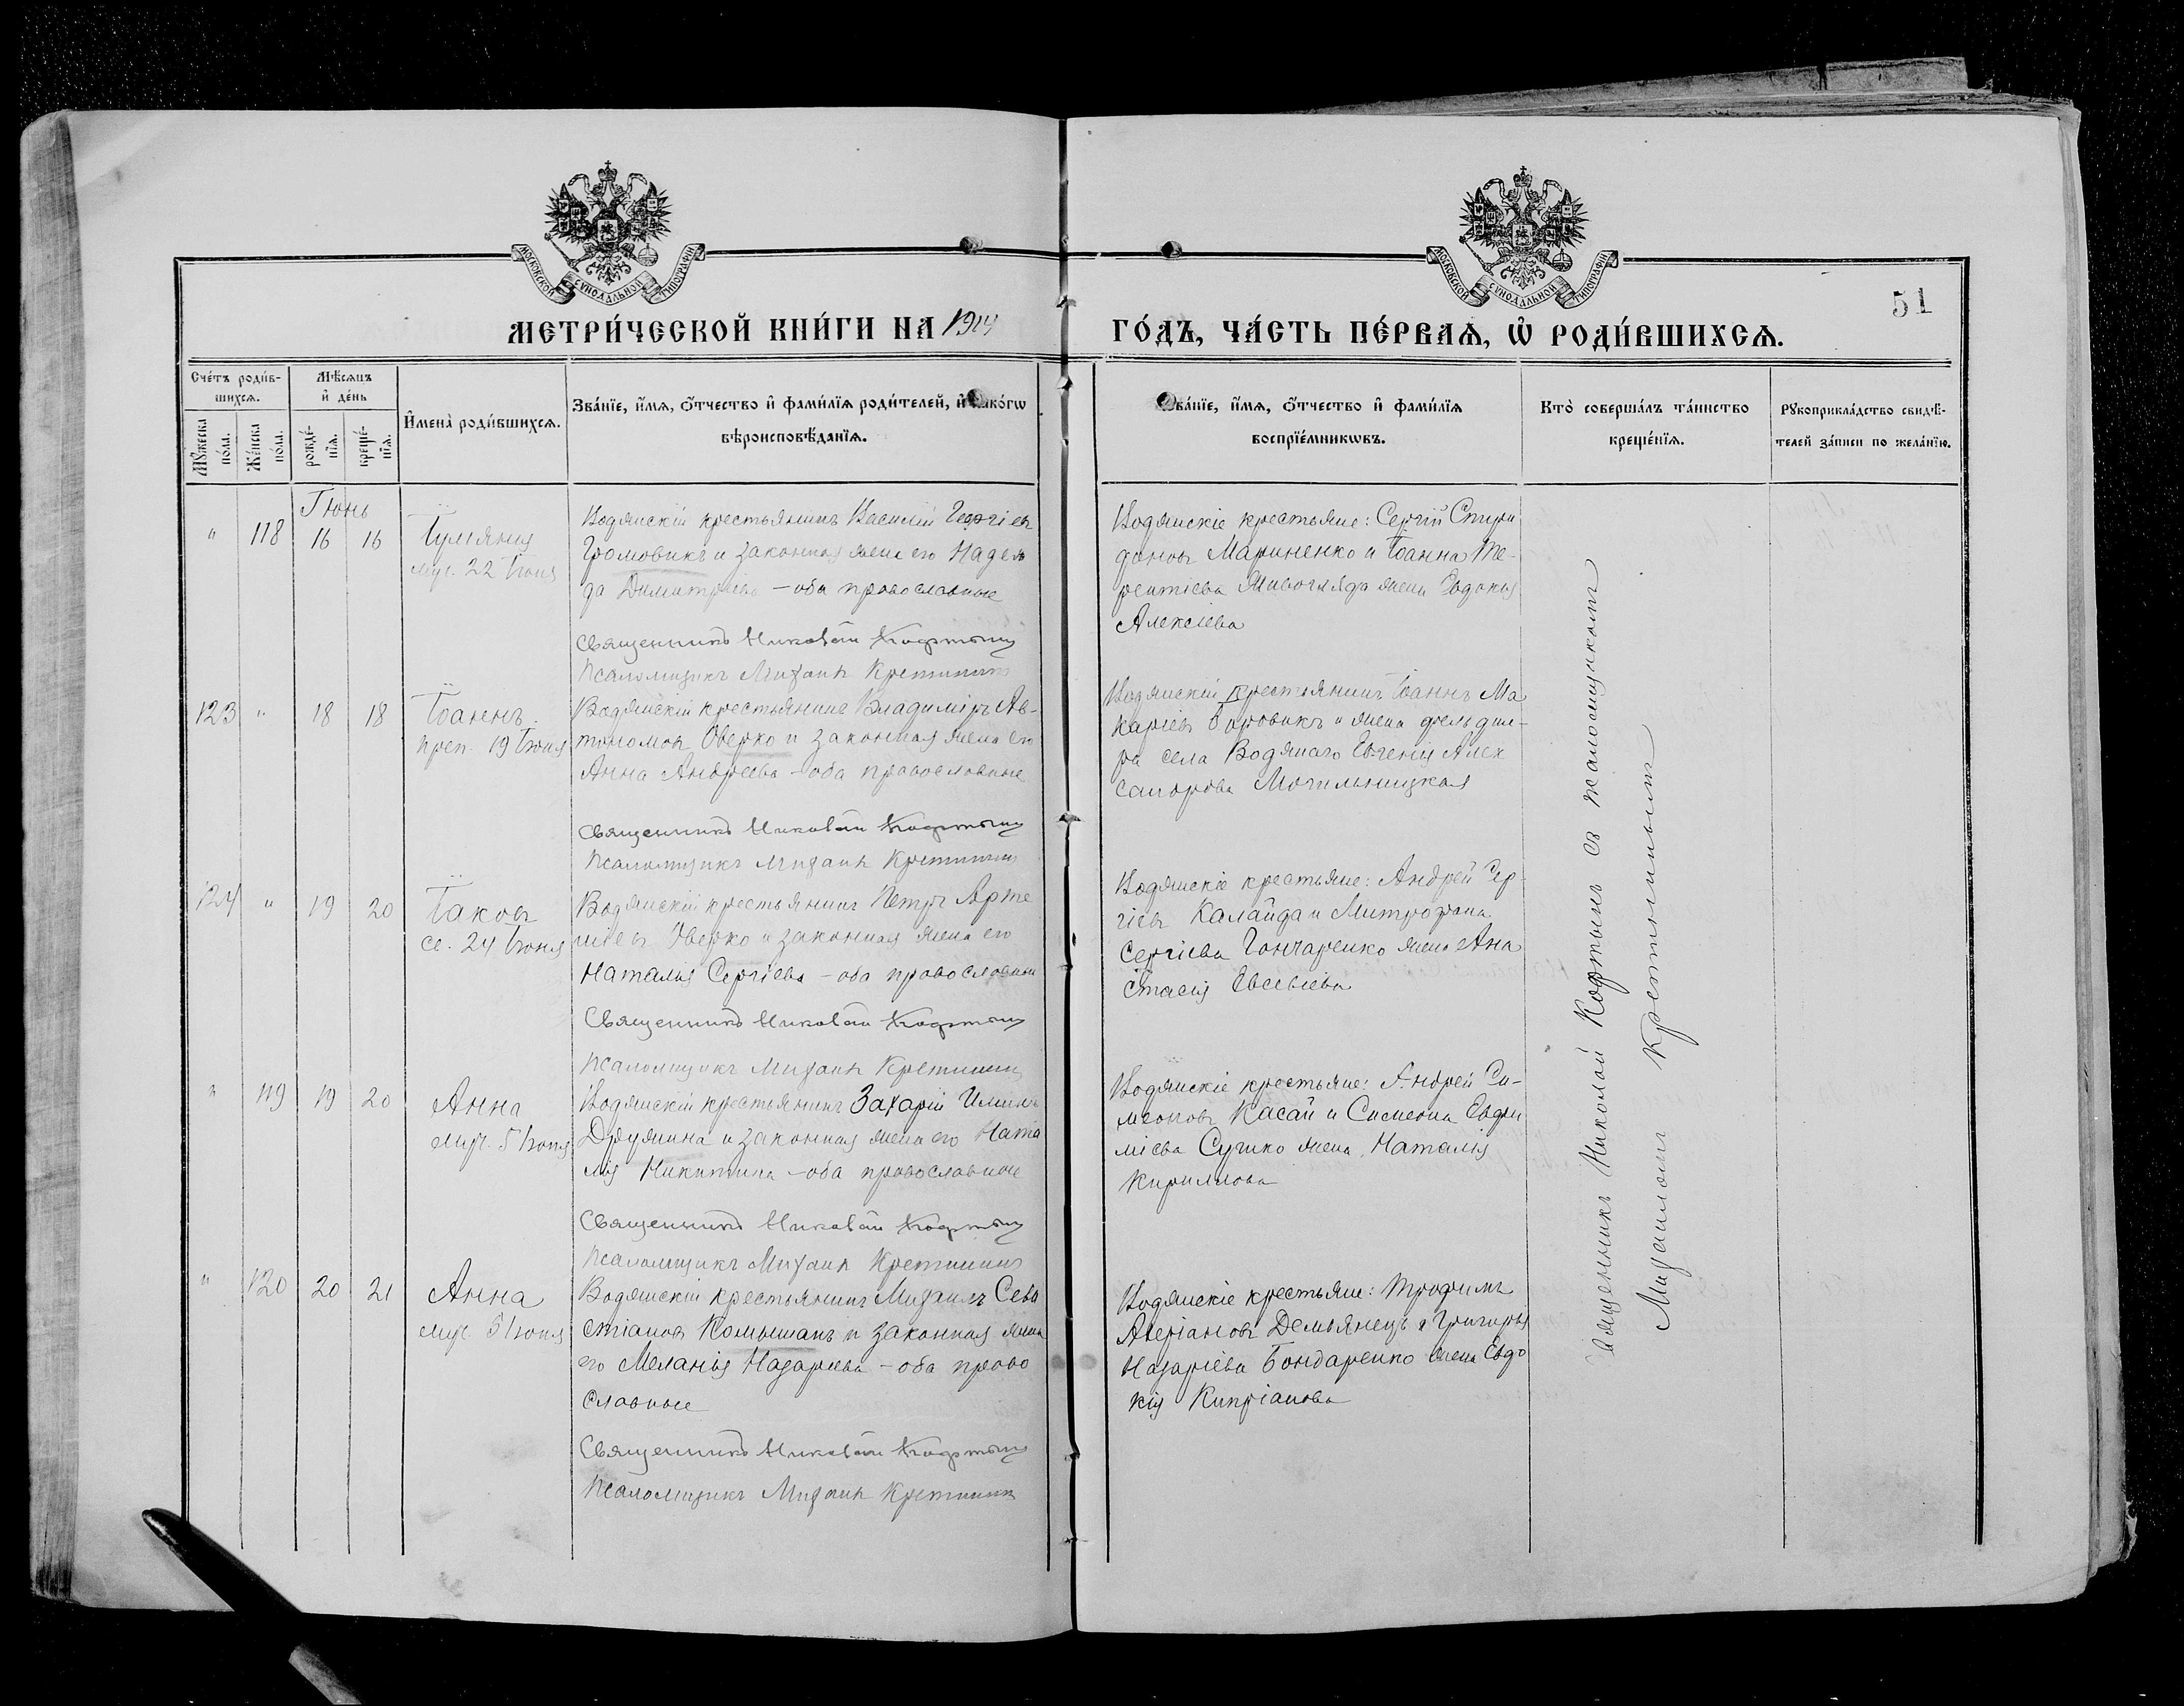 МОСКОВСКОЙ СѴНОДАЛЬНОЙ ТИПОГРАФІИ
МОСКОВСКОЙ СѴНОДАЛЬНОЙ ТИПОГРАФІИ
51
МЕТРИ́ЧЕСКОЙ КНИ́ГИ НА 1914
ГО́ДЪ, ЧА́СТЬ ПЕ́РВАѦ, Ѡ҆ РОДИ́ВШИХСѦ.
Сче́тъ роди́в-
шихсѧ.
Мѣ́сѧцъ
и҆ де́нь
Мꙋ́жеска по́ла.
Же́нска по́ла.
рожде́-
нїѧ.
креще́-
нїѧ.
И҆мена̀ роди́вшихсѧ.
Зва́нїе, и҆́мѧ, ѻ҆́тчество и҆ фами́лїѧ роди́телей, и҆ како́гѡ
вѣроисповѣ́данїѧ.
Зва́нїе, и҆́мѧ, ѻ҆́тчество и҆ фами́лїѧ
воспрїе́мникѡвъ.
Кто̀ соверша́лъ та́инство
креще́нїѧ.
Рꙋкоприкла́дство свидѣ́-
телей за́писи по жела́нїю.
Іюнь
" 118 16 16
Іуліанія
муч. 22 Іюня
Водянскій крестьянинъ Василій Георгіев
Громовикъ и законная жена его Надеж
да Димитріева - оба православные
Священникъ Николай Кофтынъ
Псаломщикъ Михаил Кретинин
Водянскіе крестьяне: Сергій Спири
доновъ Мариненко и Іоанна Те-
рентіева жена Евдокія
Алексіева
123 " 18 18
Іоаннъ
преп. 19 Іюня
Водянскій крестьянинъ Владиміръ Ав-
тономов Оверко и законная жена его
Анна Андреева - оба православные
Священникъ Николай Кофтынъ
Псаломщикъ Михаил Кретинин
Водянскій крестьянинъ Іоаннъ Ма
каріев Боровикъ и жена фельдше-
ра села Водянаго Евгенія Алек
сандрова Могильницкая
124 " 19 20
Іаков
св. 24 Іюня
Водянскій крестьянинъ Петръ Арте
міев Оверко и законная жена его
Наталія Сергіева - оба православные
Священникъ Николай Кофтынъ
Псаломщикъ Михаил Кретинин
Водянскіе крестьяне: Андрей Сер-
гіев Калайда и Митрофана
Сергіева Гончаренко жена Ана
стасія Евсевіева
" 119 19 20
Анна
муч. 5 Іюня
Водянскій крестьянинъ Захарій
и законная жена его Ната
лія Никитина - оба православные
Священникъ Николай Кофтынъ
Псаломщикъ Михаил Кретинин
Водянскіе крестьяне: Андрей Си-
меонов Касай и Симеона Евфи
міева Сушко жена Наталія
Кириллова
" 120 20 21
Анна
муч. 5 Іюня
Водянскій крестьянинъ Михаилъ Сева
стіанов Комышанъ и законная жена
его Меланія Назаріева - оба право
славные
Священникъ Николай Кофтынъ
Псаломщикъ Михаил Кретинин
Водянскіе крестьяне: Трофимъ
Демьянецъ и Григорія
Назаріева Бондаренко жена Евдо
кія Кипріанова
Священникъ Николай Кофтынъ съ псаломщикомъ
Михаиломъ Кретининымъ